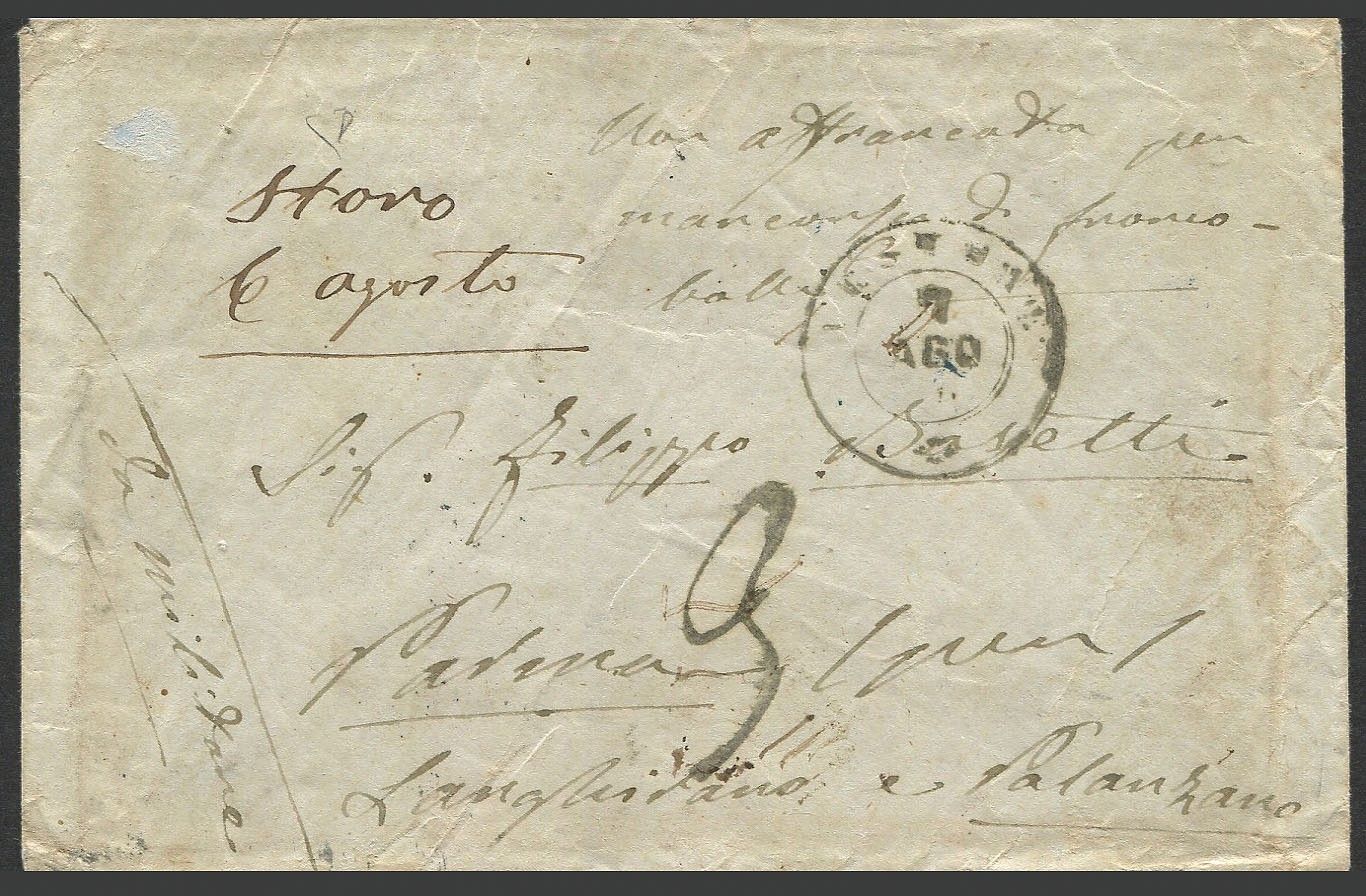 Non affrancata per
mancanza di franco-
bolli
Storo
6 agosto
7
AGO
Sig. Filippo Basetti
3
Parma (per)
Langhirano e Palanzano
Da militare